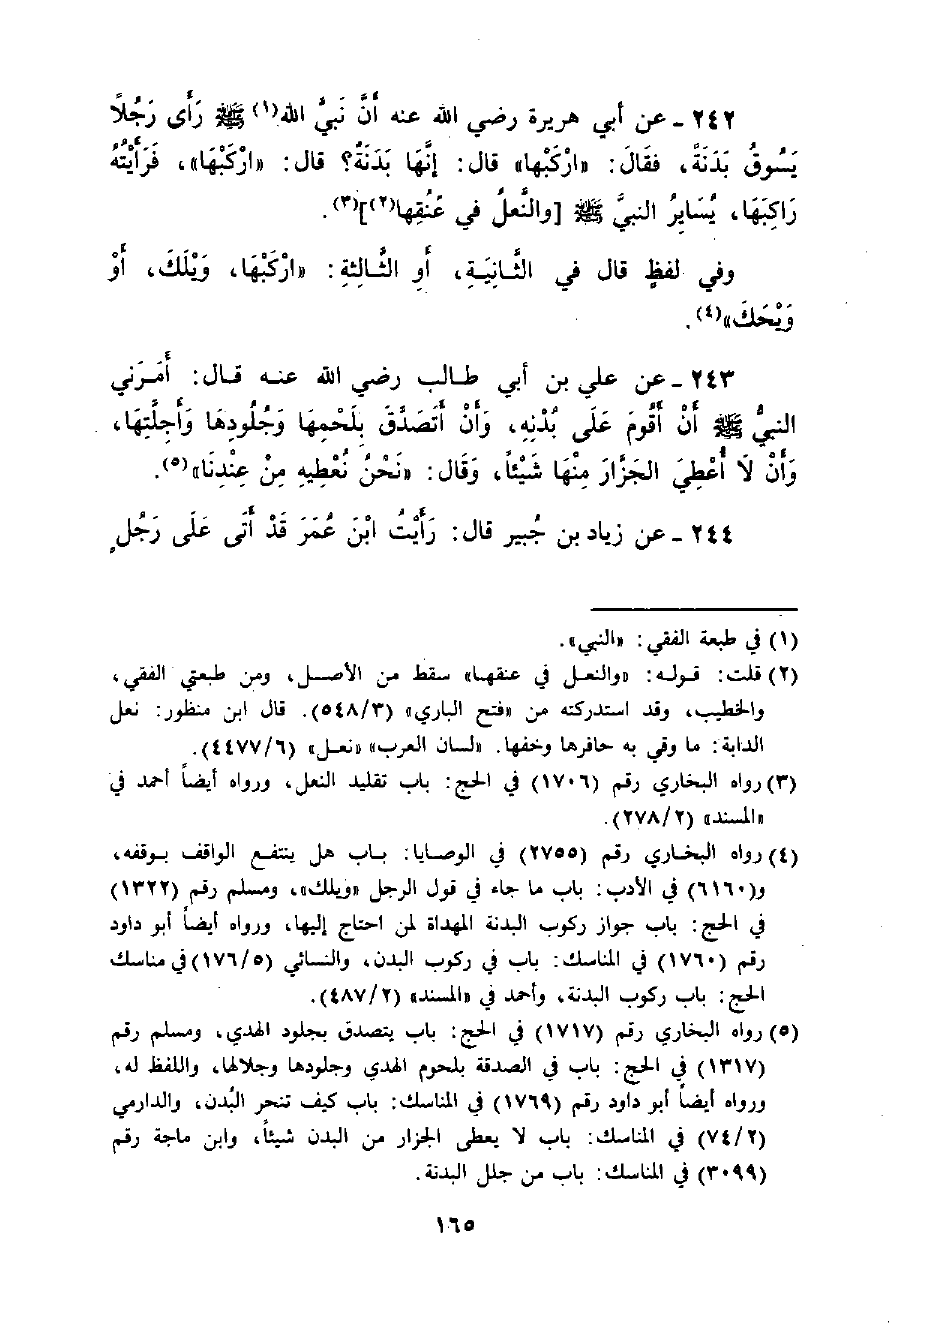 ٢٤٢ ـ عن أبي هريرة رضي الله عنه أنَّ نَبيَّ الله(١) ﷺ رَأَى رَجُلاً
يَسُوقُ بَدَنَةً، فقَالَ: «ارْكَبْها» قال: إنَّهَا بَدَنَةٌ؟ قال: «ارْكَبْهَا»، فَرَأَيْتُهُ
رَاكِبَهَا، يُسَايِرُ النبيَّ ﷺ [والنَّعلُ في عَنُقِها(٢)](٣).
وفي لفظٍ قال في الثَّانِيَةِ، أو الثَّالِثةِ: «ارْكَبْهَا، وَيْلَكَ، أَوْ
وَيْحَكَ»(٤).
٢٤٣ ـ عن علي بن أبي طالب رضي الله عنه قال: أَمَرَني
النبيُّ ﷺ أَنْ أَقُومَ عَلَى بُدْنِهِ، وَأَنْ أَتَصَدَّقَ بِلَحْمِهَا وَجُلُودِهَا وَأَجِلَّتِهَا،
وَأَنْ لَا أُعْطِيَ الجَزَّارَ مِنْهَا شَيْئاً، وَقَال: «نَحْنُ نُعْطِيهِ مِنْ عِنْدِنَا»(٥).
٢٤٤ ـ عن زياد بن جُبير قال: رَأَيْتُ ابْنَ عُمَرَ قَدْ أَتَى عَلَى رَجُلٍ
(١) في طبعة الفقي: «النبي».
(٢) قلت: قوله: «والنعل في عنقها» سقط من الأصل، ومن طبعتي الفقي،
والخطيب، وقد استدركته من «فتح الباري» (٥٤٨/٣). قال ابن منظور: نعل
الدابة: ما وقي به حافرها وخفها. «لسان العرب» «نعل» (٤٤٧٧/٦).
(٣) رواه البخاري رقم (١٧٠٦) في الحج: باب تقليد النعل، ورواه أيضاً أحمد في
«المسند» (٢٧٨/٢).
(٤) رواه البخاري رقم (٢٧٥٥) في الوصايا: باب هل ينتفع الواقف بوقفه،
و(٦١٦٠) في الأدب: باب ما جاء في قول الرجل «ويلك»، ومسلم رقم (١٣٢٢)
في الحج: باب جواز ركوب البدنة المهداة لمن احتاج إليها، ورواه أيضاً أبو داود
رقم (١٧٦٠) في المناسك: باب في ركوب البدن، والنسائي (١٧٦/٥) في مناسك
الحج: باب ركوب البدنة، وأحمد في «المسند» (٤٨٧/٢).
(٥) رواه البخاري رقم (١٧١٧) في الحج: باب يتصدق بجلود الهدي، ومسلم رقم
(١٣١٧) في الحج: باب في الصدقة بلحوم الهدي وجلودها وجلالها، واللفظ له،
ورواه أيضاً أبو داود رقم (١٧٦٩) في المناسك: باب كيف تنحر البُدن، والدارمي
(٧٤/٢) في المناسك: باب لا يعطى الجزار من البدن شيئاً، وابن ماجة رقم
(٣٠٩٩) في المناسك: باب من جلل البدنة.
١٦٥